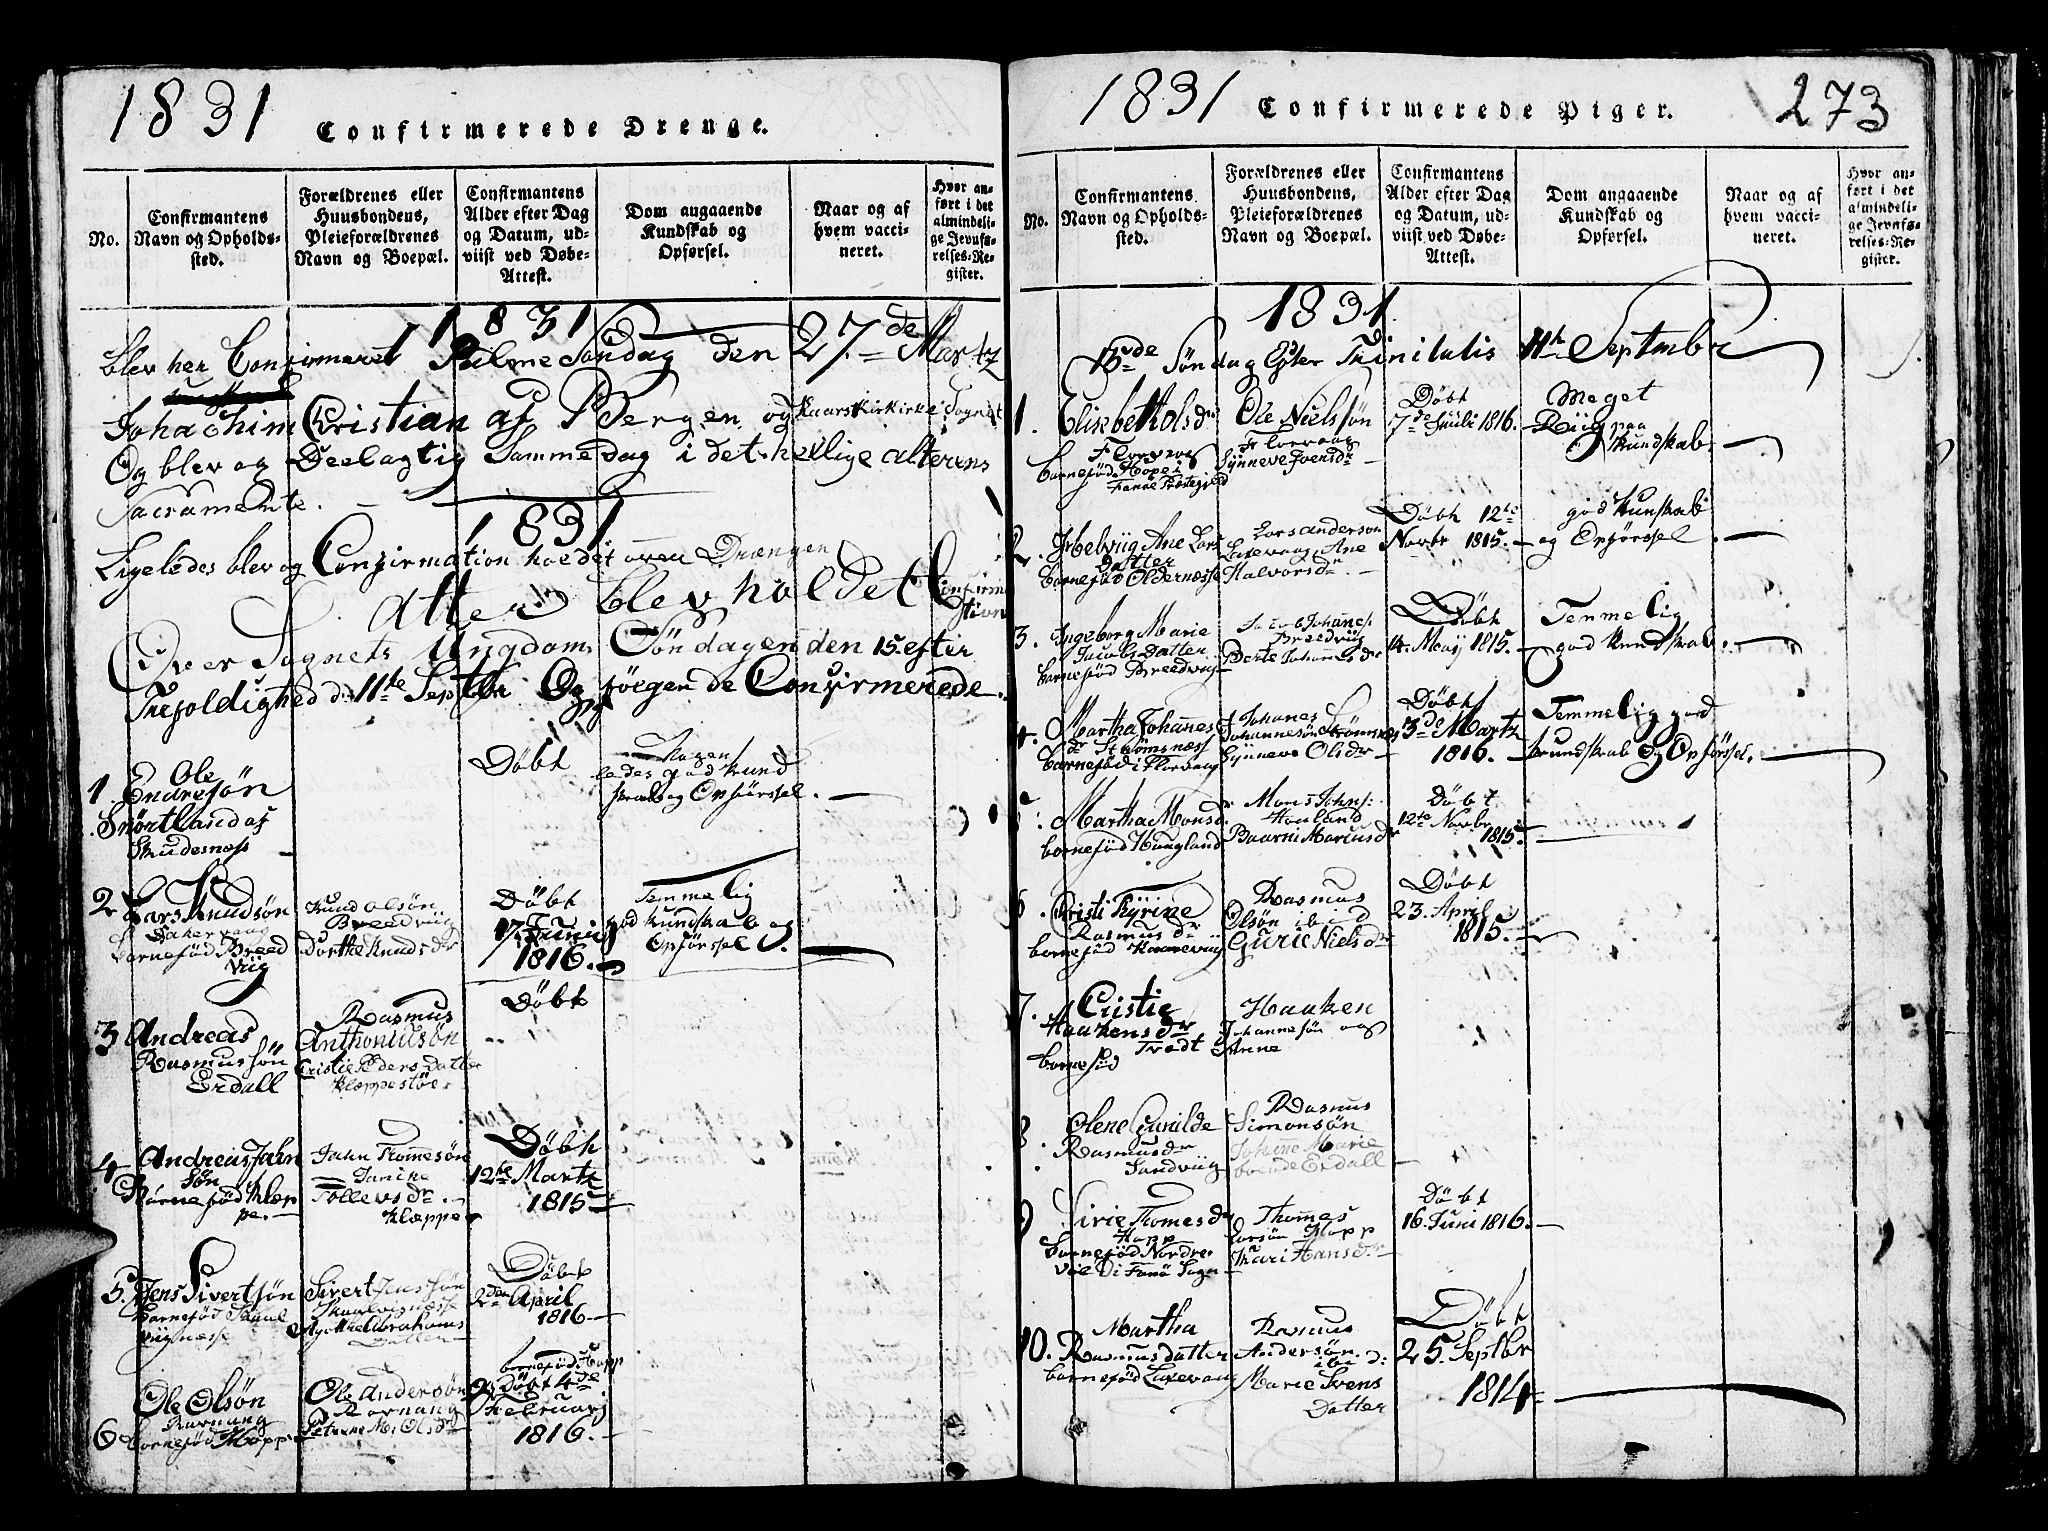 1831
Confirmerede Drenge.
No.
Confirmantens
Navn og Opholds-
sted.
Forældrenes eller
Huusbondens,
Pleieforældrenes
Navn og Boepæl.
Confirmantens
Alder efter Dag
og Datum, ud-
viist ved Døbe-
Attest.
Dom angaaende
Kundskab og
Opførsel.
Naar og af
hvem vacci-
neret.
Hvor an-
ført i det
almindeli-
ge Jevnfø-
relses-Re-
gister.
1831
Blev her Confirmeret Palme Søndag den 27.de Martz
Johachim Christian af Bergen og Kaarskirkirke Sognet
Og blev og Deelagtig Samme dag i det hellige alterens
Sacramente.
1831
Ligeledes blev og Confirmation holdet over Drængen
Atter blev holdet Confirma
tion
Over Sognets Ungdom, Søndagen den 15. efter
Trefoldighed d: 11te Septbr Og følgende Confirmerede.
1. Ole
Endresøn
Snørtland af
Skudesnæss
Døbt
Nogen
ledes god kund
skab og Opførssel.
2 Lars Knudsøn
barnefød Breed
viig
Knud Olsøn
Breedviig
Dorthe Knudsdr
Døbt
17. Junij
1816.
Temmelig
god kundskab og
Opførssel
3 Andreas
Rasmussøn
Erdall
Rasmus
Anthoniusøn
Cristie Peders Datter
Kleppestøe
Døbt
4 Andreas Jahn
Søn
Barnefød Klep
pe.
Jahn Thomesøn
Janicke
Tollevsdr
Klæppe
Døbt
12te Martz
1815
5. Jens Sivertsøn
barnefød Skaal
viignæsse
Sivert Jenssøn
Skaalvignæsse
Abrahams
Datter
Døbt
2den April
1816
6 Ole Olsøn
Ravnang
barnefød Hopp
Ole Andersøn
Ravnang
Olsdr
barnefød Hopp
Døbt 4de
Februarj
1816.
1831
Confirmerede Piger.
273
No.
Confirmantens
Navn og Opholds-
sted.
Forældrenes eller
Huusbondens,
Pleieforældrenes
Navn og Boepæl.
Confirmantens
Alder efter Dag
og Datum, ud-
viist ved Døbe-
Attest.
Dom angaaende
Kundskab og
Opførsel.
Naar og af
hvem vacci-
neret.
Hvor an-
ført i det
almindeli-
ge Jevnfø-
relses-Re-
gister.
1831
15de Søndag Efter Trinitatis 11te September
1. Elisebet Olsdr
Florvog
barnefød Hope i
Fanøe Præstegield
Ole Nielsøn
Florvaag
Synneve Ivensdr
Døbt
7de Juli 1816.
Meget
Riig paa
kundskab
2. Ane Lars
Datter
barnefød Oldernæsse
Lars Anderson
Laxevaag Ane
Halvorsdr
Døbt 12te
Novbr 1815.
god kunskab
og Opførssel
3. Ingeborg Marie
Jacobs Datter
barnefød Breedvug
Jacob Johanes:
Breedviig
Berte Johannesdr
Døbt
14. Maij 1815.
Temmelig
god kundskab
4. Martha Johannes
dr Strømsnæss
barnefød i Florvaag
Johanes
Johannesøn Strømsnæs
Synneve Olsdr
Døbt
3de Martz
1816.
Temmelig god
kundskab og Opførssel.
5. Martha Monsdr
barnefød Haagland
Mons Johns:
Houland
Mariusdr
Døbt
12te Novbr
1815
6. Christi Kyrine
Rasmusdr
barnefød
Rasmus
Olsøn ibid
Gurie Nielsdr
Døbt
23. April
1815.
7. Cristie
Haakensdr
Tvedt
barnefød
Haaken
Johannesøn og
Anne
8. Olene Gunilde
Rasmusdr
Sandviig
Rasmus
Simonsøn
Johanne Marie
boende Erdall
9 Sirie Thomesdr
Hopp
barnefød Nordre
Viid i Fanø Sogn
Thomes
Larsøn Hopp
Kari Hansdr
Døbt
16. Juni 1816.
10. Martha
Rasmusdatter
barnefød Laxevaag
Rasmus
Andersøn
ibid:
Marie Svens
Datter
Døbt
25. Septbr
1814